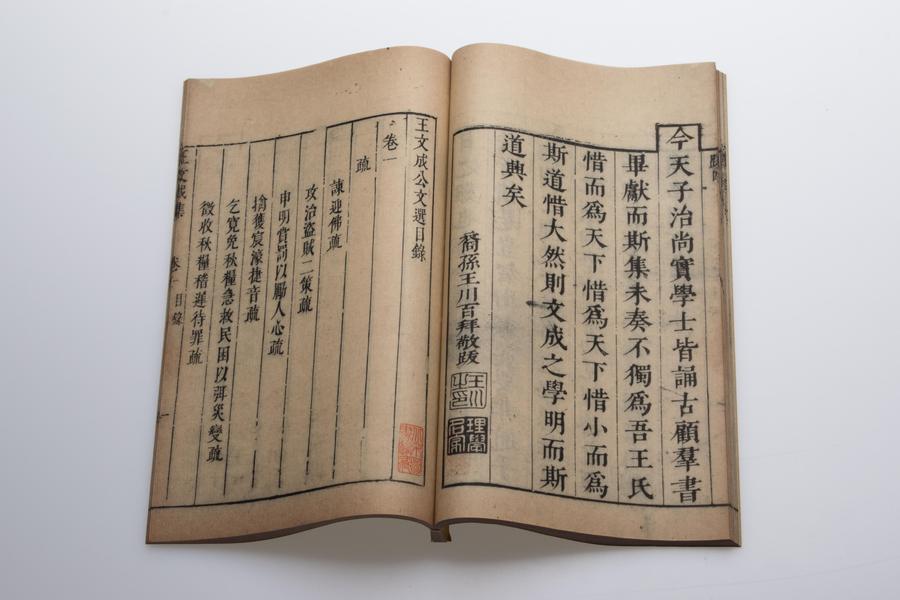 今天子治尚實學士皆誦古顧羣書
畢獻而斯集未奏不獨爲吾王氏
惜而爲天下惜爲天下惜小而爲
斯道惜大然則文成之學明而斯
道興矣
裔孫王川百拜敬跋
王川之印
理學名家
王文成公文選目錄
卷一
疏
諫迎佛疏
攻治盜賊二策疏
申明賞罰以勵人心疏
擒獲宸濠捷音疏
乞寬免秋糧急救民困以弭災變疏
徵收秋糧稽遲待罪疏
王文成集 卷一 目錄